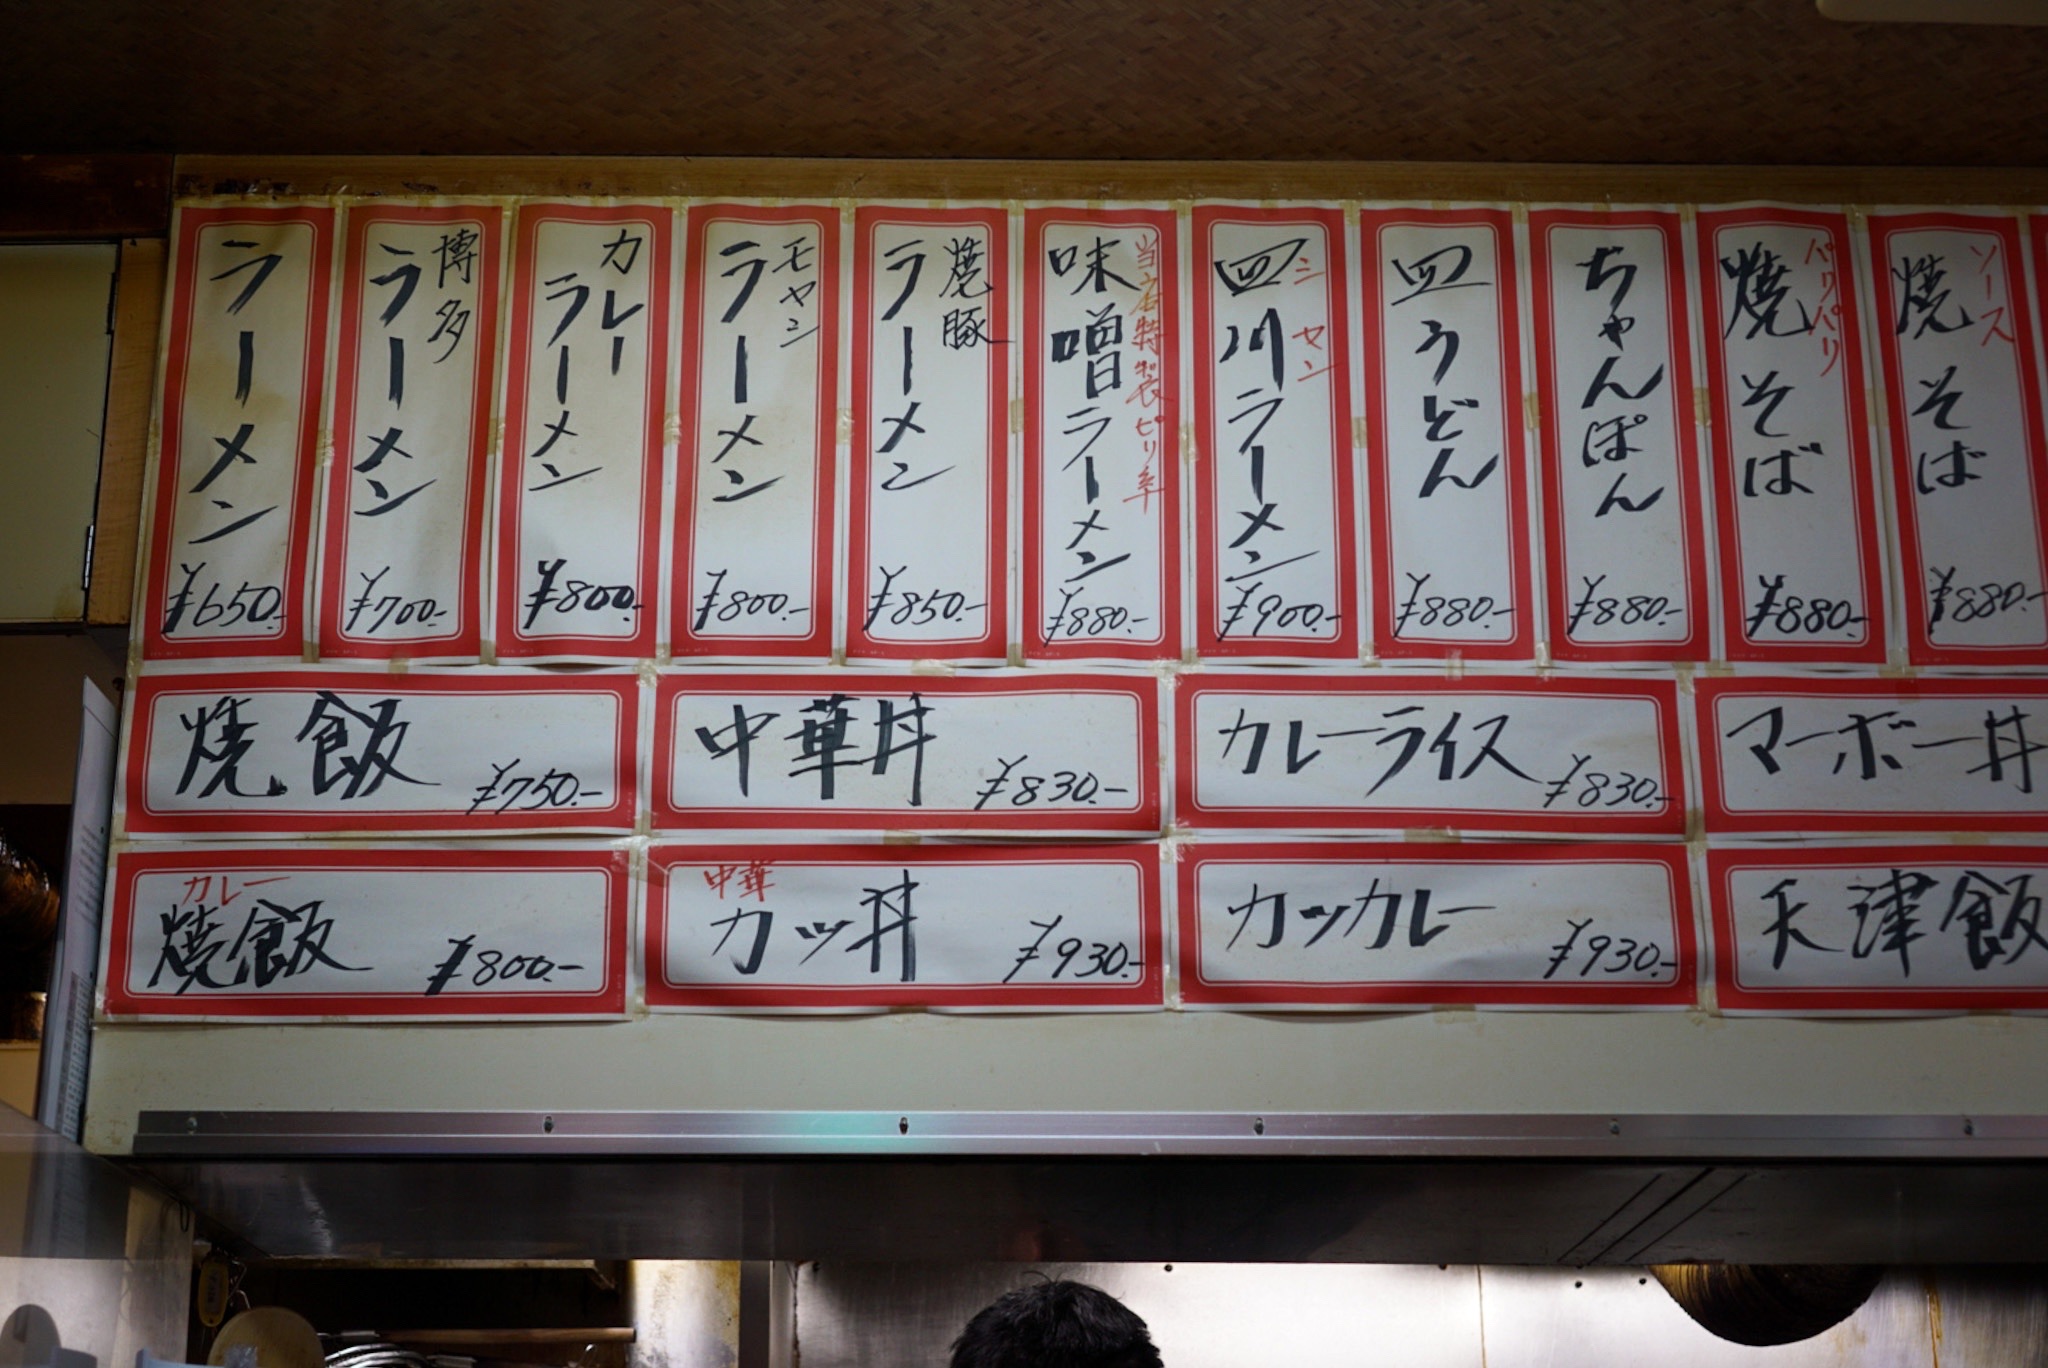 ラーメン
¥650.-
博多
ラーメン
¥700.-
カレー
ラーメン
¥800.-
モヤシ
ラーメン
¥800.-
焼豚
ラーメン
¥850.-
当店特製ピリ辛
味噌ラーメン
¥880.-
シセン
四川ラーメン
¥900.-
皿うどん
¥880.-
ちゃんぽん
¥880.-
パリパリ
焼そば
¥880.-
ソース
焼そば
¥880.-
焼飯 ¥750.-
中華丼 ¥830.-
カレーライス ¥830.-
マーボー丼
カレー
焼飯 ¥800.-
中華
カツ丼 ¥930.-
カツカレー ¥930.-
天津飯